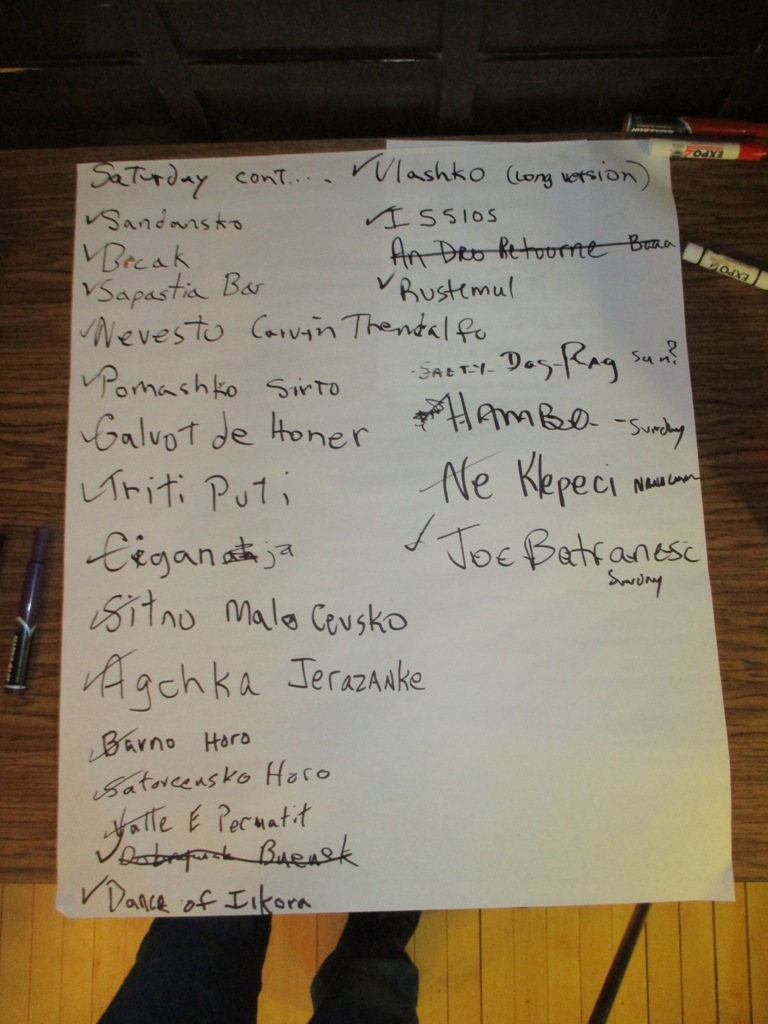 Saturday cont....
✓Sandansko
✓Bicak
✓Sapastia Bar
✓Nevesto Carvin Thendalfo
✓Pomashko Sirto
✓Galvot de Honer
✓Triti Puti
✓Ciganja
✓Sitno Malo Cevsko
✓Agchka Jerazanke
✓Barno Horo
✓Satovcensko Horo
✓Valle E Permatit
✓
✓Dance of Iikora
✓Vlashko (Long version)
✓ISSIOS
An Dro Retourne
✓Rustemul
-SALTY- Dog-Rag Sun?
HAMBO - Sunday
✓Ne Klepeci
✓Joc Batranesc
Sunday
EXPO
EXPO
EXPO